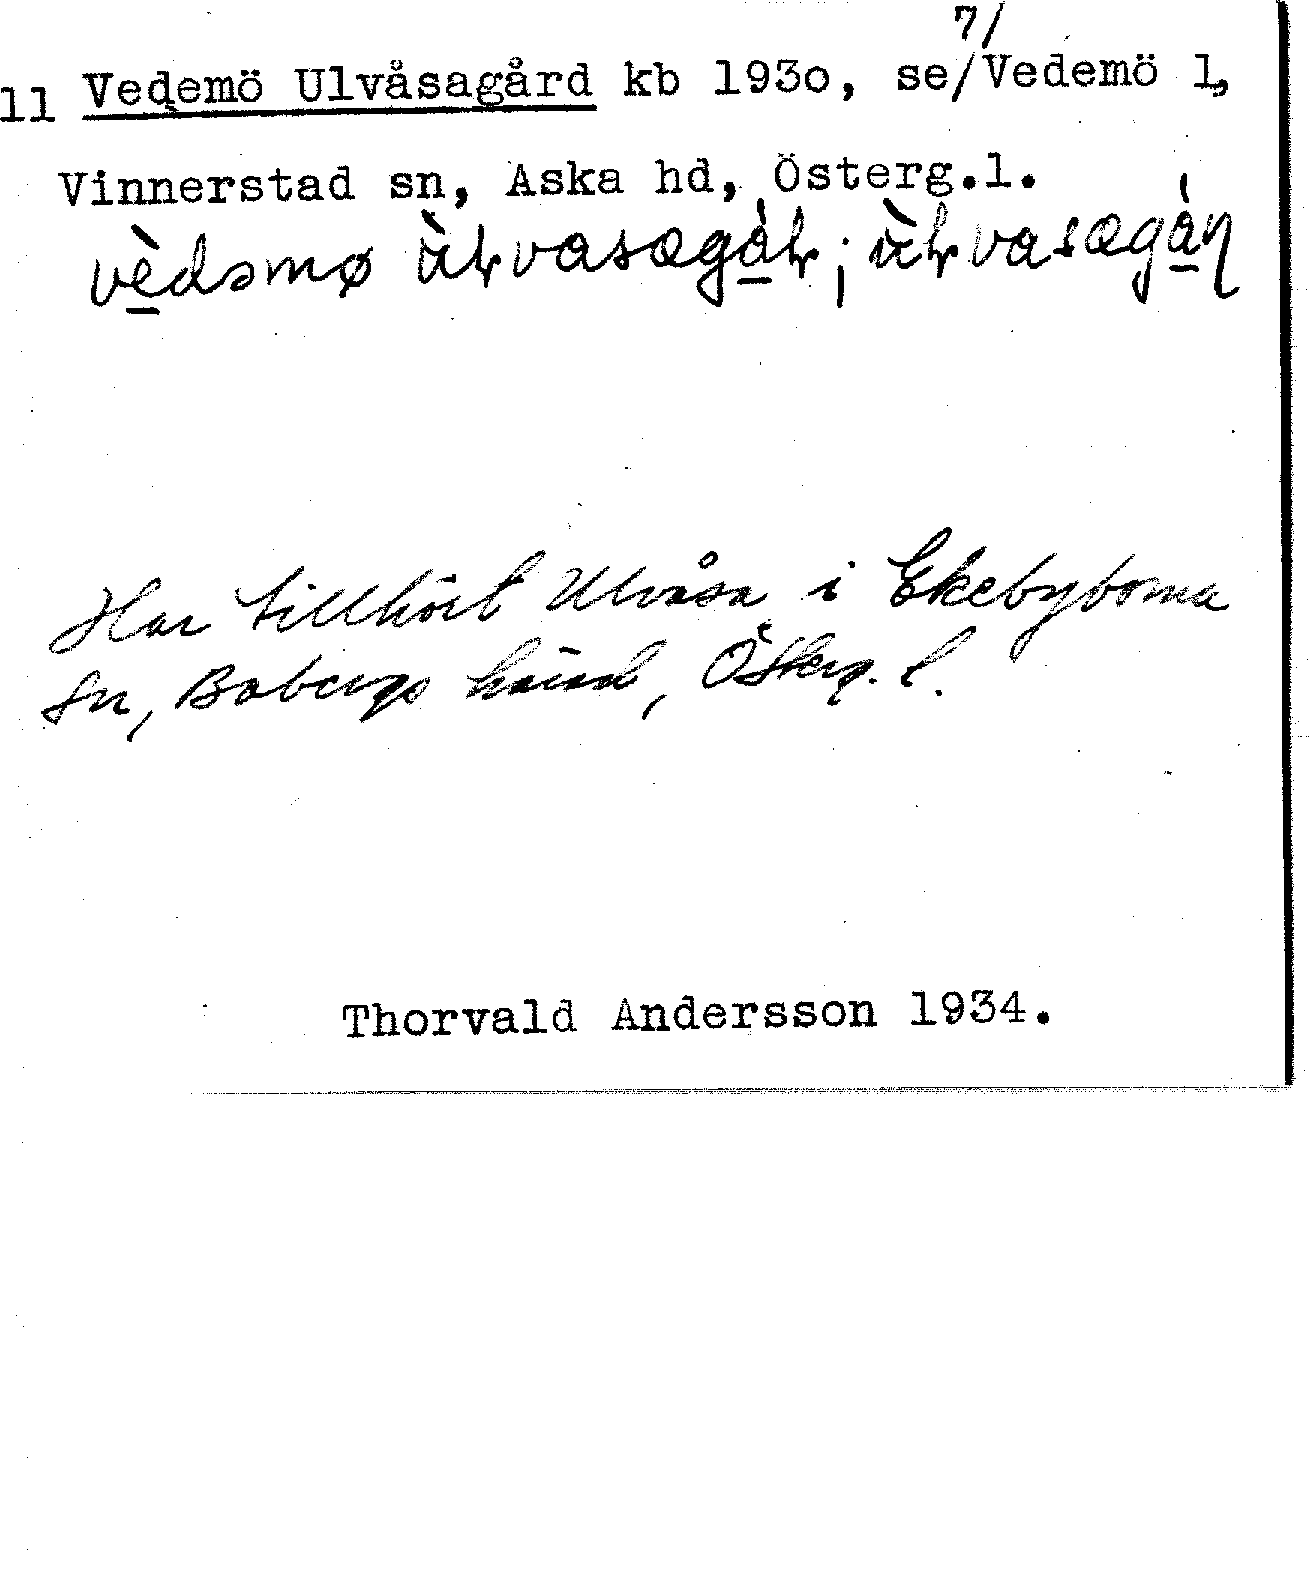 7/
11 Vedemö Ulvåsagård kb 193o, se/Vedemö 1,
Vinnerstad sn, Aska hd, Österg.l.
vèdəmø
Har tillhört Ulvåsa i Ekebyborna
sn, Bobergs härad, Österg. l.
Thorvald Andersson 1934.